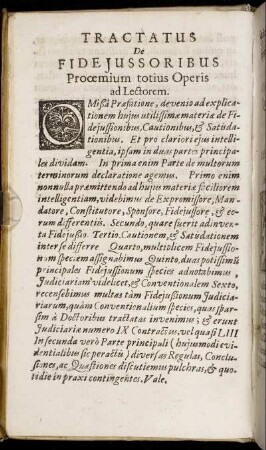 TRACTATUS
De
FIDEJUSSORIBUS
Procemium totius Operis
ad Lectorem.
OMissâ Præfatione, devenio ad explicationem
hujus utilissimæ materiæ de Fidejussionibus,
Cautionibus, & Satisdationibus.
Et pro clariori ejus intelligentia,
ipsam in duas partes principales
dividam. In prima enim Parte de multorum
terminorum declaratione agemus. Primo enim
nonnulla præmittendo ad hujus materiæ faciliorem
intelligentiam, videbimus de Expromissore, Mandatore,
Constitutore, Sponsore, Fidejussore, & eorum
differentiis. Secundo, quare fuerit adinventa
Fidejussio. Tertio Cautionem, & Satisdationem
inter se differre Quarto, multiplicem Fidejussionum
speciem assignabimus Quinto, duas potissimùm
principales Fidejussionum species adnotabimus,
Judiciariam videlicet, & Conventionalem Sexto,
recensebimus multas tàm Fidejussionum Judiciariarum,
quàm Conventionalium species, quas sparsim
à Doctoribus tractatas invenimus; & erunt
Judiciariæ numero IX Contractus, vel quasi LIII
In secunda verò Parte principali (hujusmodi evidentialibus
sic peractis) diversas Regulas, Conclusiones,
ac Quæstiones discutiemus pulchras, & quotidie
in praxi contingentes. Vale.